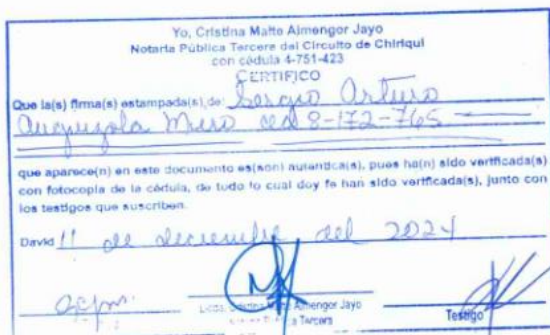 Yo, Cristina Maite Almengor Jayo
Notaria Pública Tercera del Circuito de Chiriquí
con cédula 4-751-423
CERTIFICO
Que la(s) firma(s) estampada(s), de: Sergio Arturo
Muro ced 8-172-765
que aparece(n) en este documento es(son) autentica(s), pues ha(n) sido verificada(s)
con fotocopia de la cédula, de todo lo cual doy fe han sido verificada(s), junto con
los testigos que suscriben.
David 11 de diciembre del 2024
Almengor Jayo
Tercera
Testigo